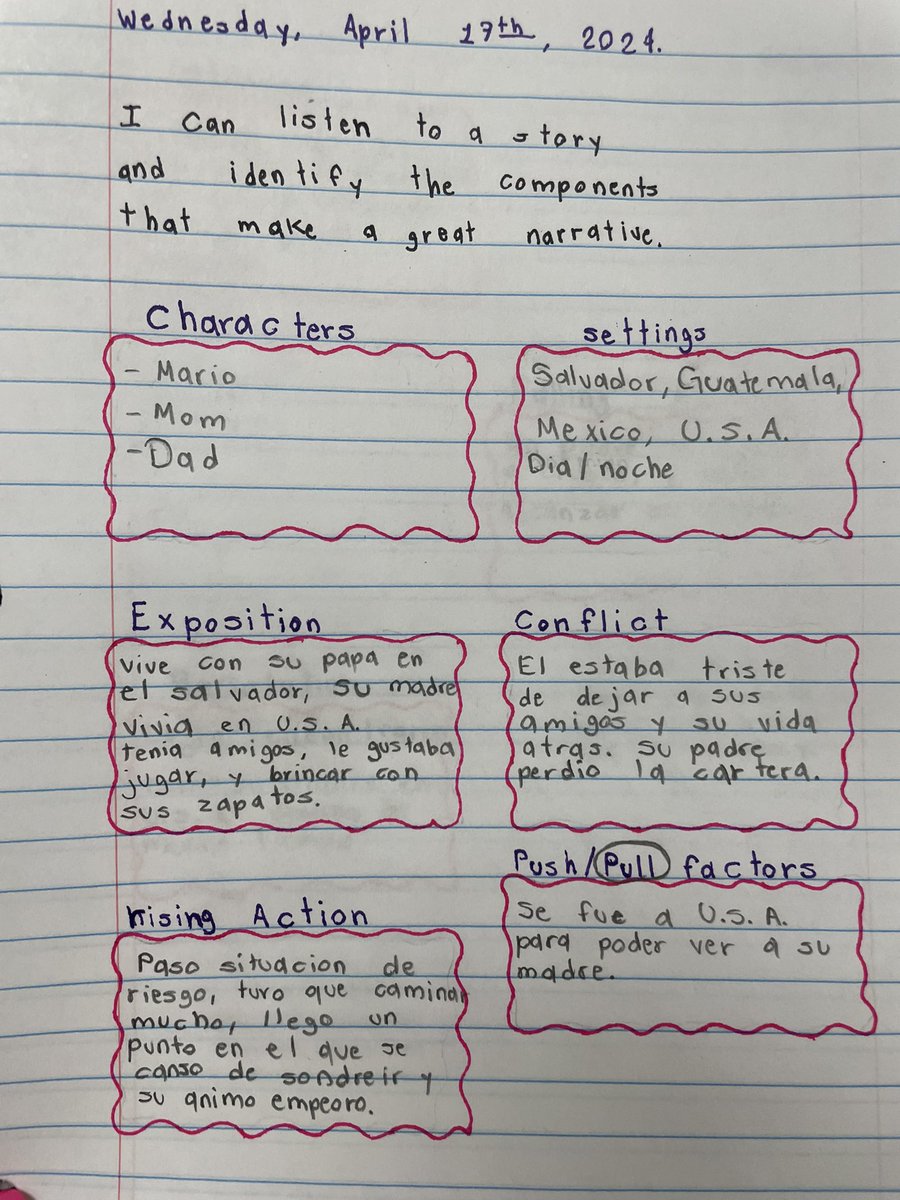 Wednesday, April 17th, 2024.
I can listen to a story
and identify the components
that make a great narrative.
Characters
- Mario
- Mom
- Dad
settings
Salvador, Guatemala,
Mexico, U.S.A.
Dia/noche
Exposition
vive con su papa en
el salvador, su madre
vivia en U.S.A.
tenia amigos, le gustaba
jugar, y brincar con
sus zapatos.
Conflict
El estaba triste
de dejar a sus
amigos y su vida
atras. su padre
perdio la cartera.
Push/Pull factors
Se fue a U.S.A.
para poder ver a su
madre.
Rising Action
Paso situacion de
riesgo, tuvo que caminar
mucho, llego un
punto en el que se
canso de sondreir y
su animo empeoro.